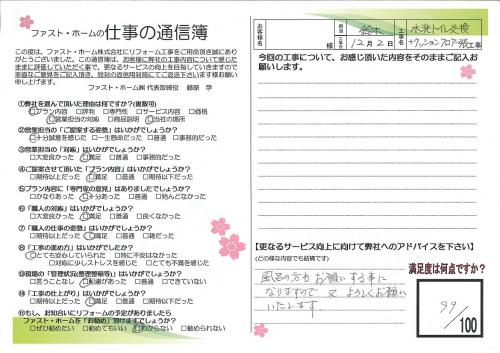 ファスト・ホームの仕事の通信簿
この度は、ファスト・ホーム株式会社にリフォーム工事をご用命頂き誠にありがとうございました。この通信簿は、お客様に弊社の工事内容について感じたままに評価していただく事で、更なるサービスの向上を目指していきますので率直なご意見をご記入頂き、同封の返信用封筒にてご返送下さいます様お願い申し上げます。
ファスト・ホーム㈱ 代表取締役 藤原 学
①弊社を選んで頂いた理由は何ですか?(複数可)
□プラン内容 □評判 □専門性 □サービス内容 □価格
□営業担当の対応 □商品説明 □当社の場所
②営業担当の「ご提案する姿勢」はいかがでしょうか?
□十分誠意を感じた □一生懸命だった □普通 □事務的だった
③営業担当の「対応」はいかがでしょうか?
□大変良かった □満足 □普通 □事務的だった
④ご提案させて頂いた「プラン内容」はいかがでしょうか?
□期待以上だった □満足 □普通 □期待以下だった
⑤プラン内容に「専門家の意見」はありましたでしょうか?
□かなりあった □十分あった □普通 □他んどなかった
⑥「職人の対応」はいかがでしょうか?
□大変良かった □満足 □普通 □良くなかった
⑦「職人の仕事の姿勢」はいかがでしょうか?
□期待以上だった □満足 □普通 □雑だった
⑧「工事の進め方」はいかがでしたか?
□とても安心していられた □特に不安はなかった
□対応に少しストレスに感じた □とても不満を感じた
⑨現場の「管理状況(整理整頓等)」はいかがでしょうか?
□言うことなし □配慮があった □できていない
⑩「工事の仕上がり」はいかがでしょうか?
□期待以上だった □満足 □普通 □期待以下
⑪もし、お知合いにリフォームの予定がありましたら
ファスト・ホームを「お勧め」頂けますでしょうか?
□ぜひ勧めたい □勧めてもいい □わからない □勧められない
お客様名 様
担当 鈴木
工事 12月2日
工事名 水洗トイレ交換
+クッションフロアー張工事
今回の工事について、お感じ頂いた内容をそのままご記入お願いします。
【更なるサービス向上に向けて弊社へのアドバイスを下さい】
(どの様な内容でも結構です)
風呂の方もお願いする事に
なりますので 又よろしくお願い
いたします
満足度は何点ですか?
99/100